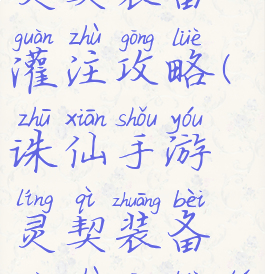 guàn zhù gōng lüè
灌注攻略(
zhū xiān shǒu yóu
诛仙手游
líng qì zhuāng bèi
灵契装备